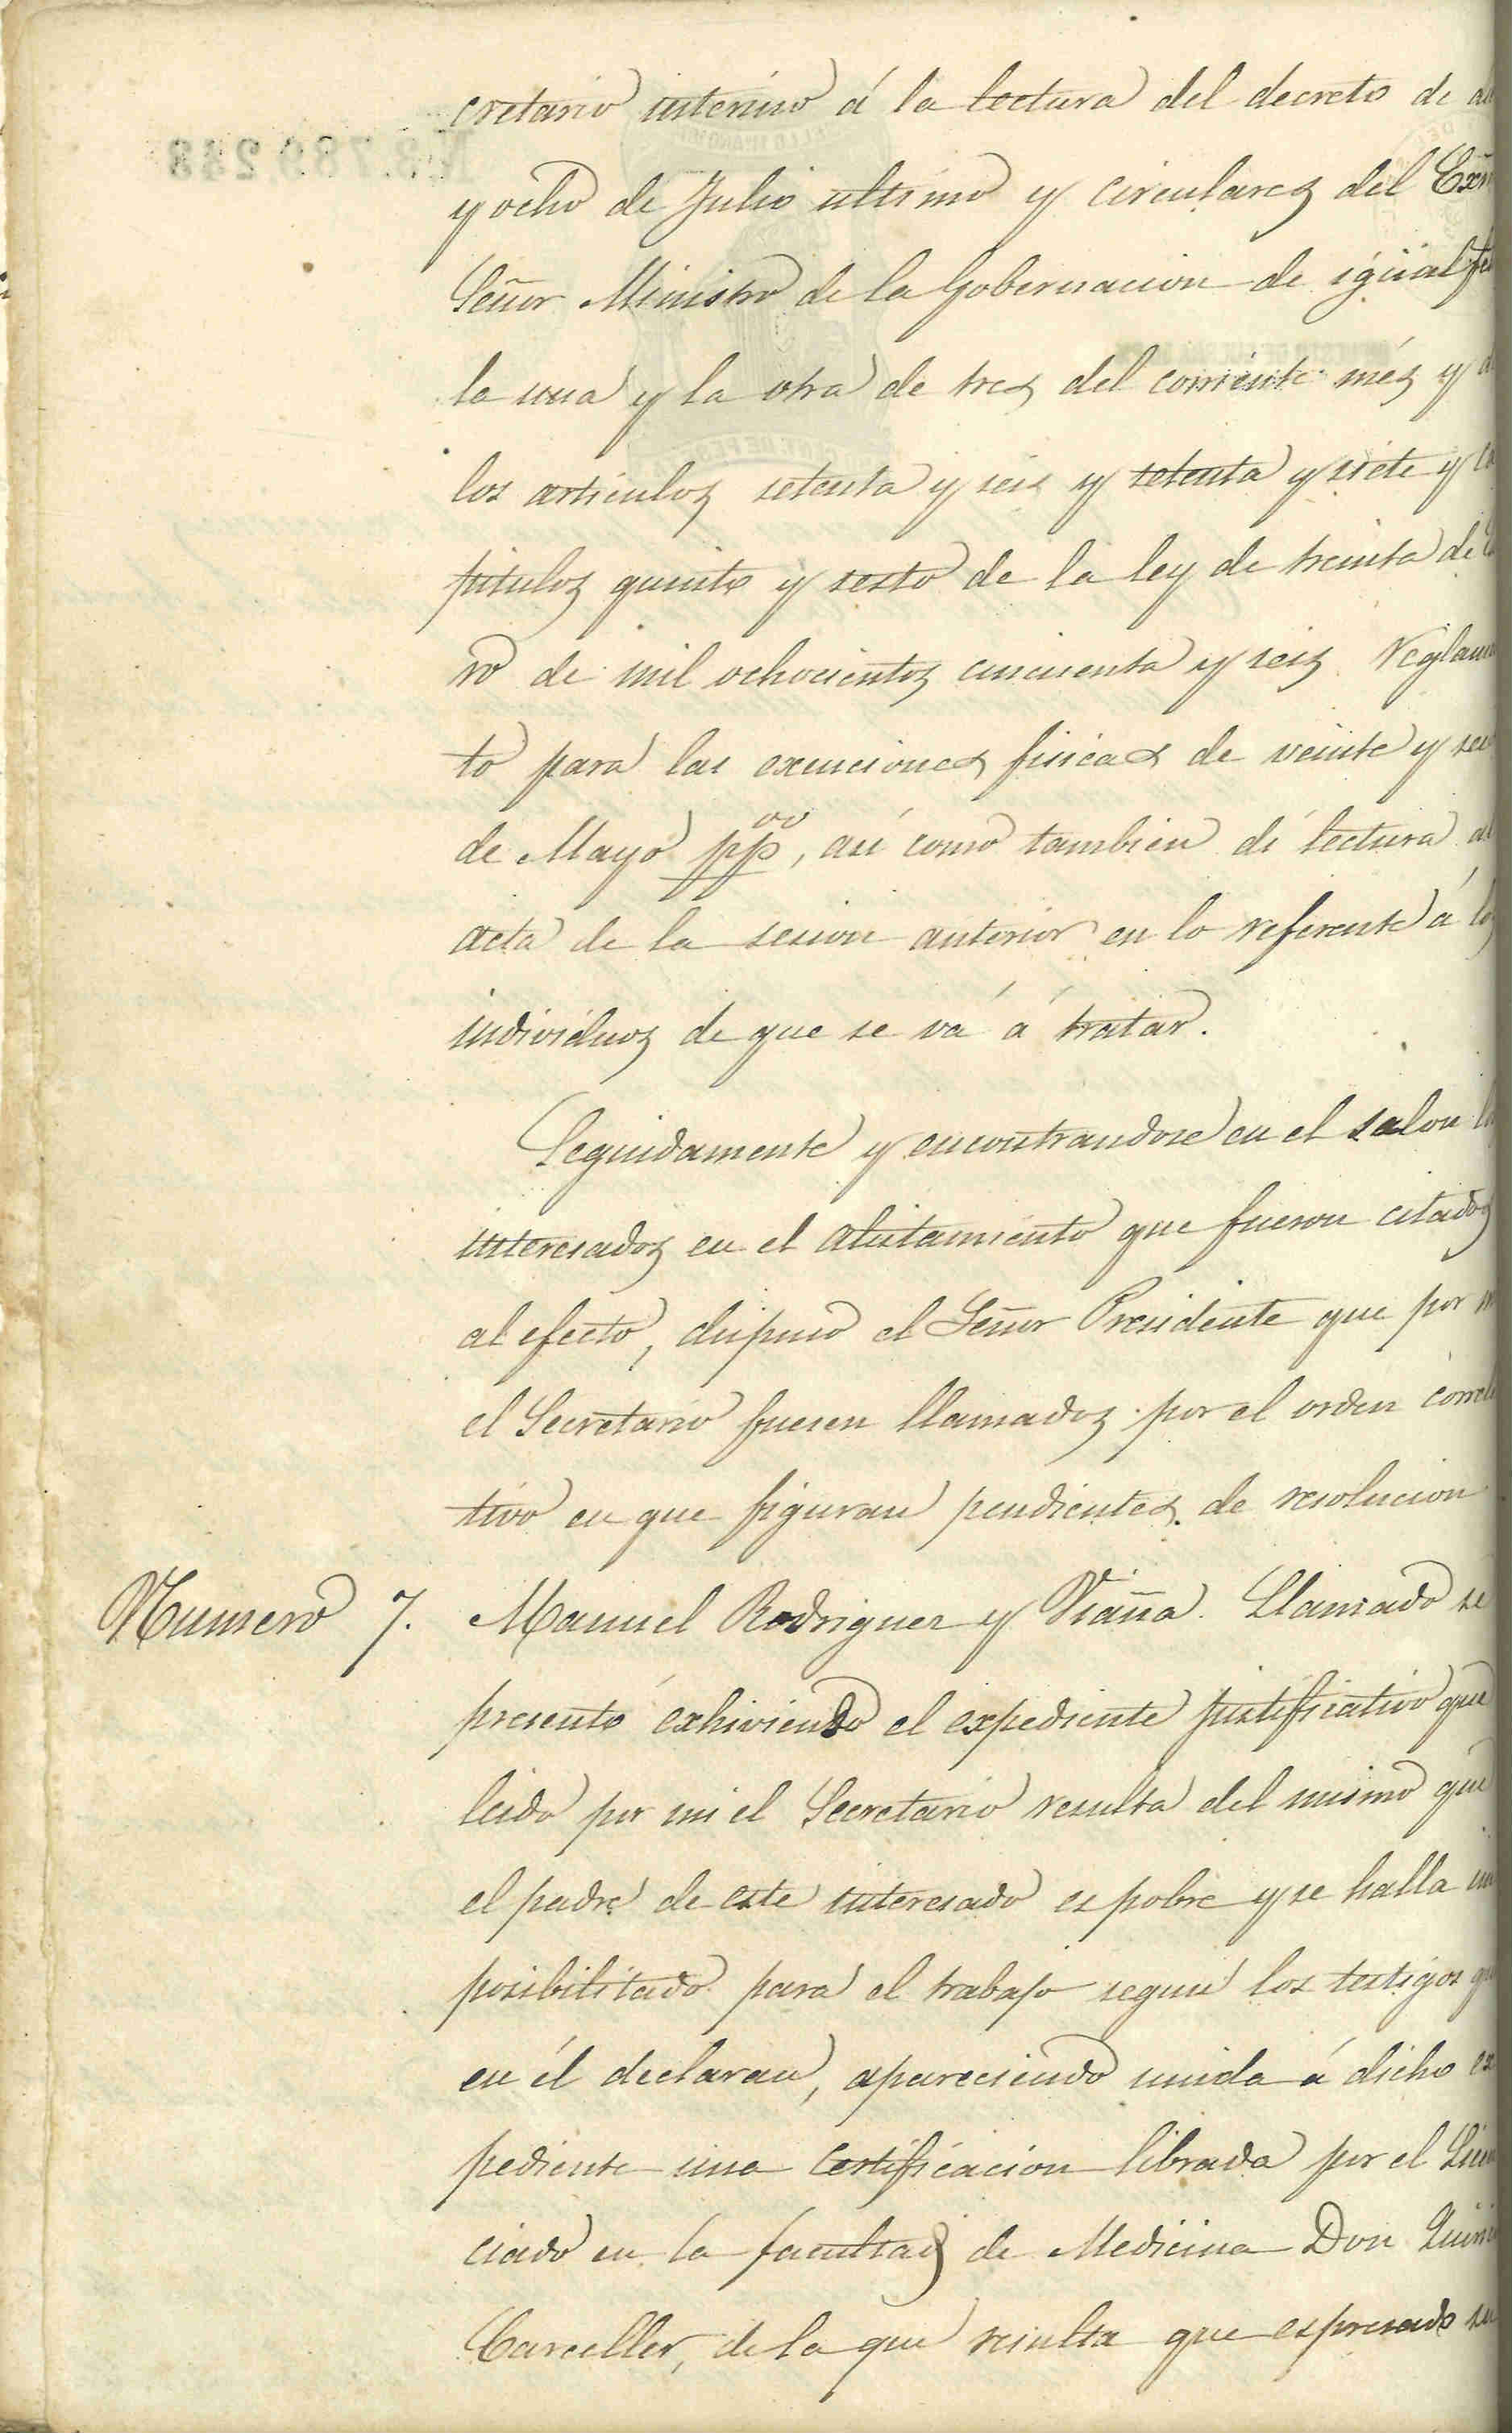 cretario interino á la lectura del decreto de
y ocho de Julio ultimo y circulares del Exm
Señor Ministro de la Gobernacion de igual fe
la una y la otra de tres del corriente més y
los articulos setenta y seis y setenta y siete y ca
pitulos quinto y sesto de la ley de treinta de
ro de mil ochocientos cincuenta y seis Reglamen
to para las exenciones fisicas de veinte y seis
de Mayo pp.oo, así como tambien dí lectura al
acta de la sesion anterior en lo referente á los
individuos de que se vá á tratar.
Seguidamente y encontrandose en el salon los
interesados en el alistamiento que fueron citados
al efecto, dispuso el Señor Presidente que por
el Secretario fuesen llamados por el orden correla
tivo en que figuran pendientes de resolucion
Numero 7. Manuel Rodriguez y Viaña. Llamado se
presentó exhiviendo el expediente justificativo que
leido por mi el Secretario resulta del mismo que
el padre de este interesado es pobre y se halla im
posibilitado para el trabajo segun los testigos que
en él declaran, apareciendo unida á dicho ex
pediente una certificacion librada por el Licen
ciado en la facultad de Medicina Don
Carceller, de la que resulta que espresado su